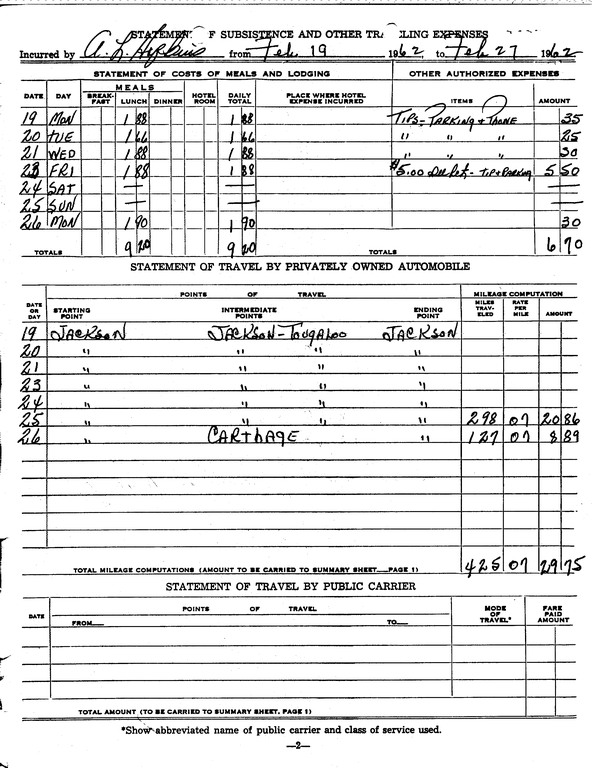 STATEMENT OF SUBSISTENCE AND OTHER TRAVELING EXPENSES
Incurred by A. L. Hopkins from Feb. 19 1962, to Feb 27 1962
STATEMENT OF COSTS OF MEALS AND LODGING OTHER AUTHORIZED EXPENSES
DATE DAY MEALS BREAK-FAST LUNCH DINNER HOTEL ROOM DAILY TOTAL PLACE WHERE HOTEL EXPENSE INCURRED ITEMS AMOUNT
19 MON 1 88 1 88 TIPS - PARKING + PHONE 35
20 TUE 1 66 1 66 " " " 25
21 WED 1 88 1 88 " " " 30
23 FRI 1 88 1 88 $5.00 - TIP + PARKING 5 50
24 SAT — — —
25 SUN — — —
26 MON 1 90 1 90 30
TOTALS 9 20 9 20 TOTALS 6 70
STATEMENT OF TRAVEL BY PRIVATELY OWNED AUTOMOBILE
DATE OR DAY POINTS OF TRAVEL MILEAGE COMPUTATION
STARTING POINT INTERMEDIATE POINTS ENDING POINT MILES TRAV-ELED RATE PER MILE AMOUNT
19 JACKSON JACKSON-TOUGALOO JACKSON
20 " " " "
21 " " " "
23 " " " "
24 " " " "
25 " " " " 298 07 20 86
26 " CARTHAGE " 127 07 8 89
TOTAL MILEAGE COMPUTATIONS (AMOUNT TO BE CARRIED TO SUMMARY SHEET PAGE 1) 425 07 29 75
STATEMENT OF TRAVEL BY PUBLIC CARRIER
DATE POINTS OF TRAVEL MODE OF TRAVEL* FARE PAID AMOUNT
FROM TO
TOTAL AMOUNT (TO BE CARRIED TO SUMMARY SHEET, PAGE 1)
*Show abbreviated name of public carrier and class of service used.
—2—